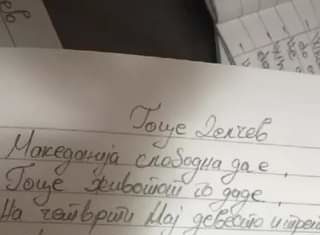 Гоце Делчев
Македонија слободна да е,
Гоце животот го даде,
На четврти Мај девесто и трет